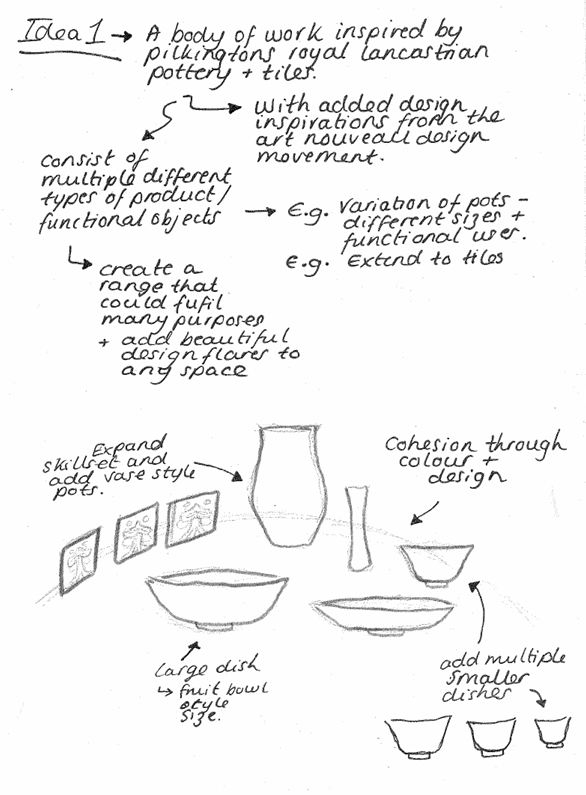 Idea 1 → A body of work inspired by
pilkingtons royal lancastrian
pottery + tiles.
with added design
inspirations from the
art nouveau design
movement.
consist of
multiple different
types of product/
functional objects
→ E.g. variation of pots -
different sizes +
functional uses.
E.g. Extend to tiles
create a
range that
could fufil
many purposes
+ add beautiful
design flares to
any space
Expand
skillset and
add vase style
pots.
Cohesion through
colour +
design
large dish
↳ fruit bowl
style
size.
add multiple
smaller
dishes